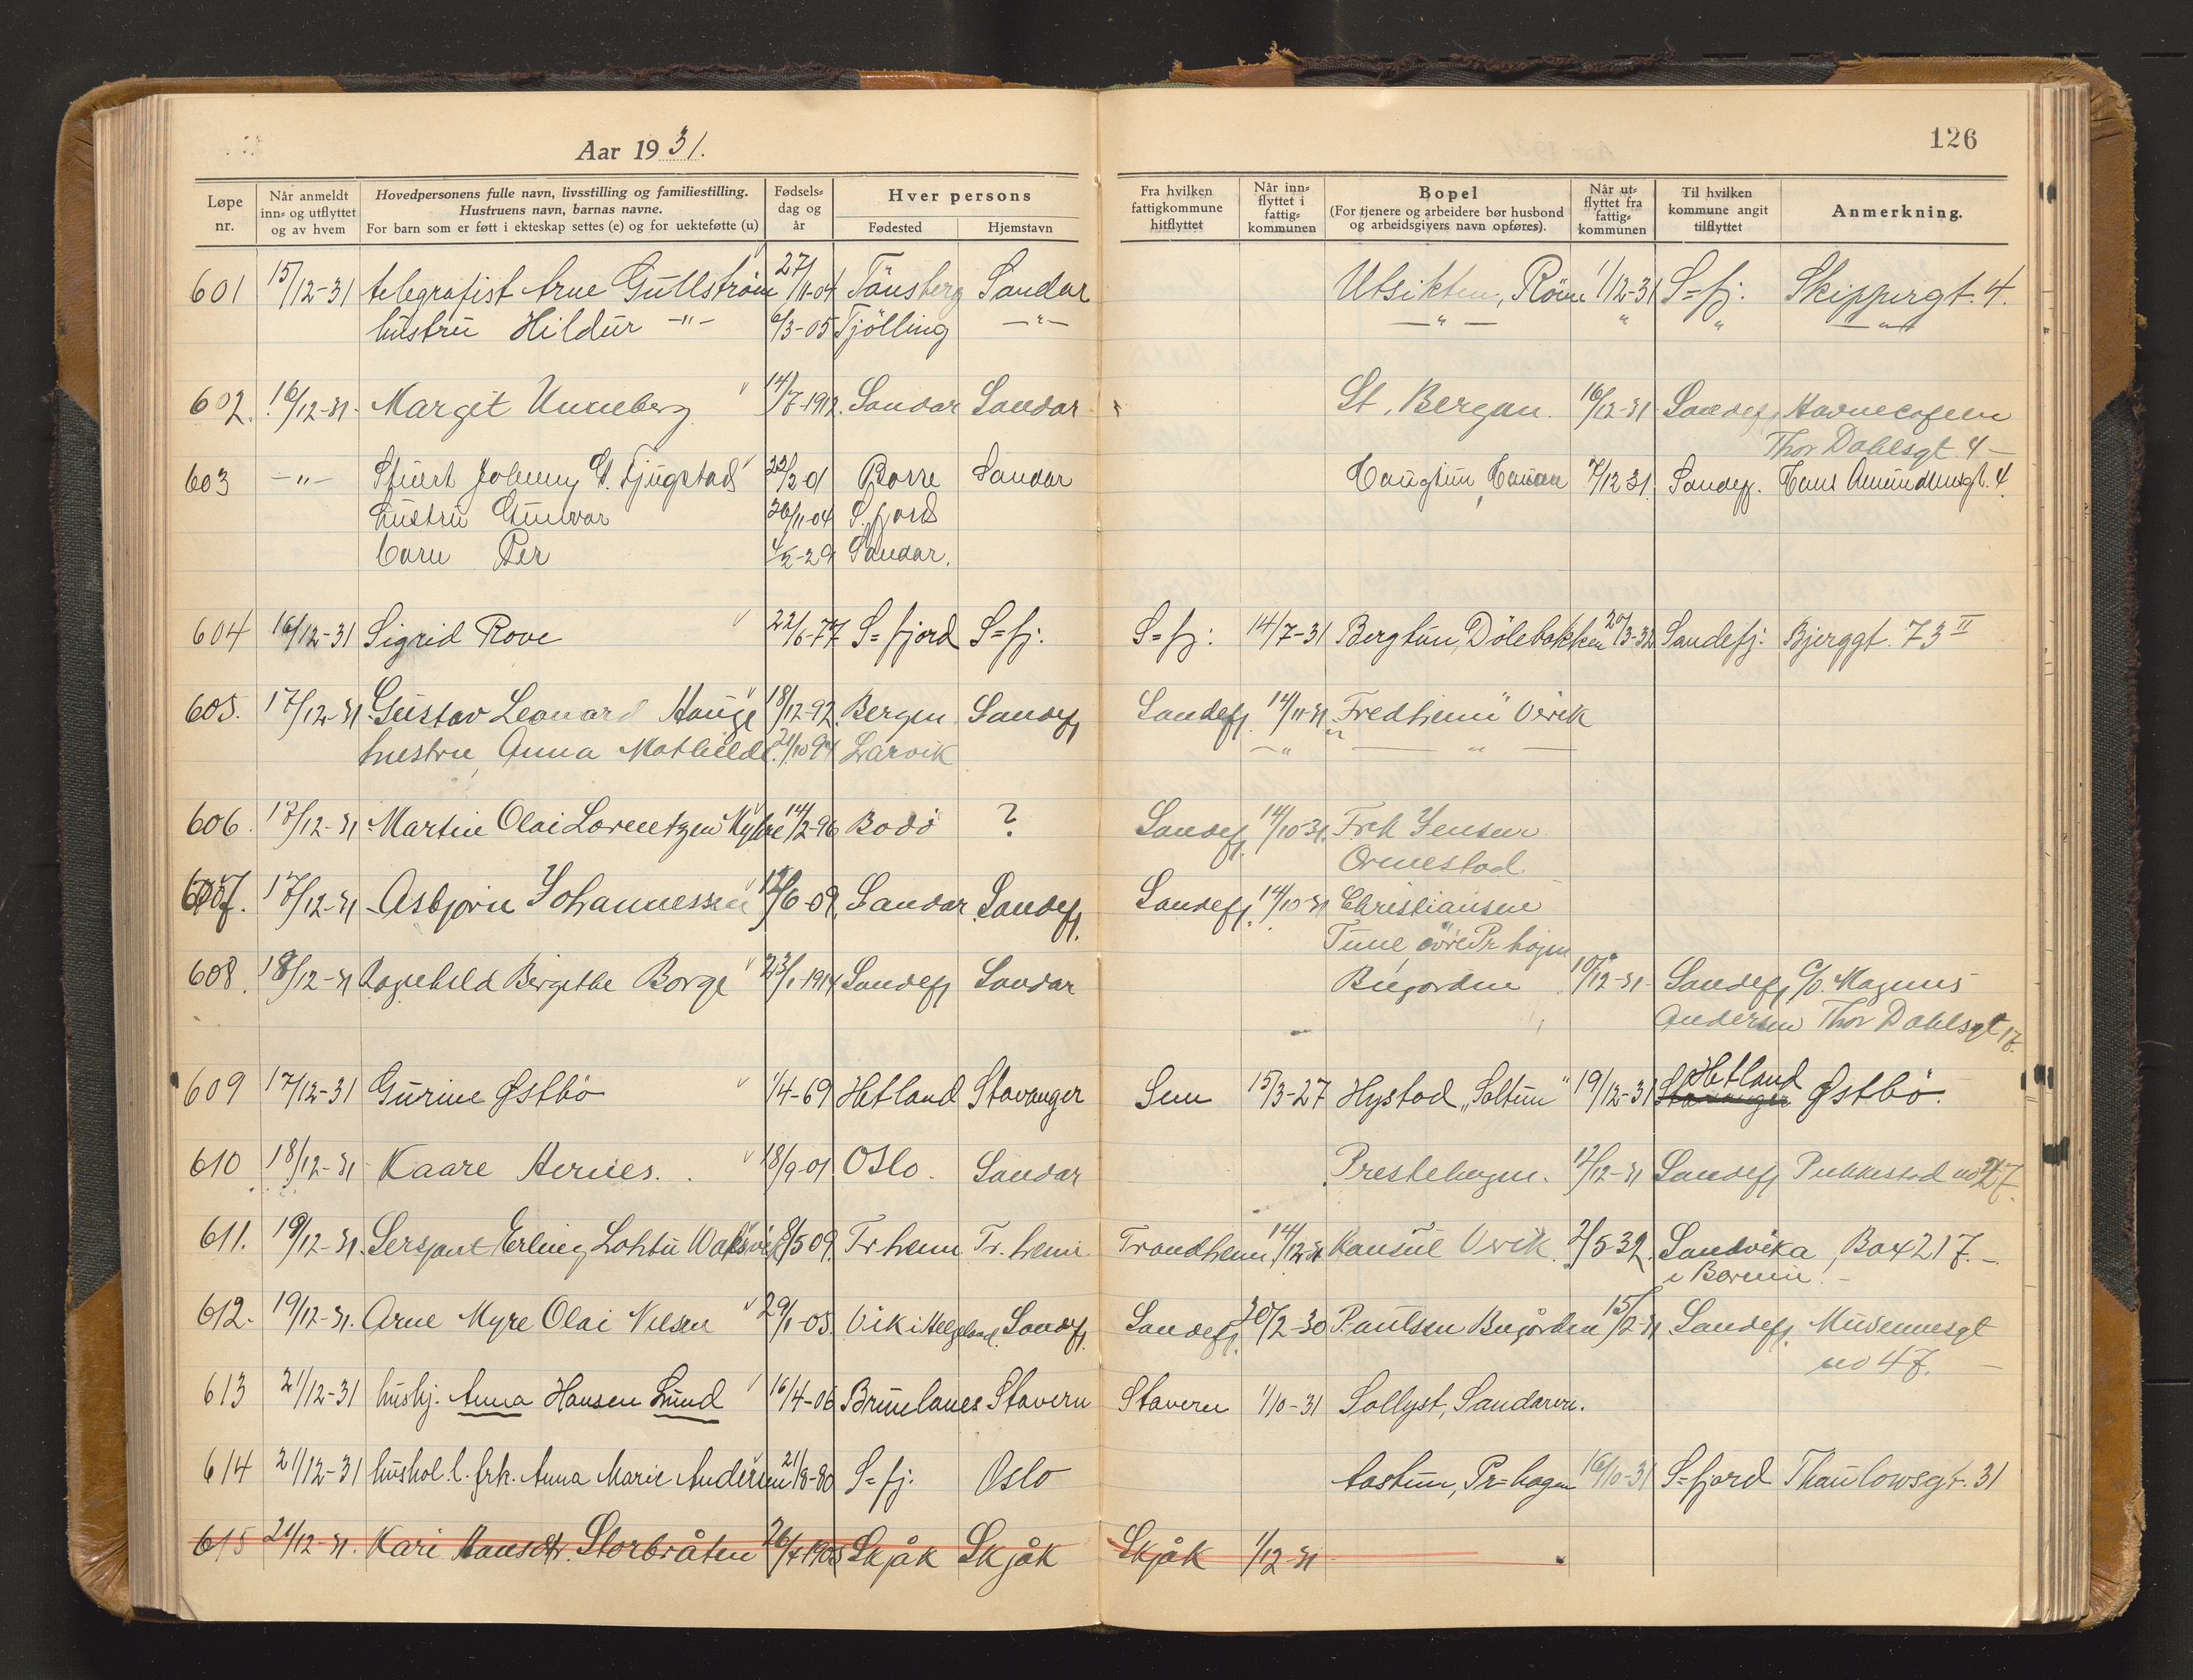 Aar 1931.
126
Løpe nr.
Når anmeldt inn= og utflyttet og av hvem
Hovedpersonens fulle navn, livsstilling og familiestilling. Hustruens navn, barnas navne. For barn som er født i ekteskap settes (e) og for uekteføtte (u)
Fødsels= dag og år
Hver persons
Fødested
Hjemstavn
Fra hvilken fattigkommune hitflyttet
Når inn= flyttet i fattig= kommunen
Bopel (For tjenere og arbeidere bør husbond og arbeidsgivers navn opføres).
Når ut= flyttet fra fattig= kommunen
Til hvilken kommune angit tilflyttet
Anmerkning.
601 15/12-31 telegrafist Arne Gullstrøm 27/11-04 Tønsberg Sandar Utsikten, Røme 1/12-31 S=fj: Skippergt. 4.
hustru Hildur -"- 6/3-05 Tjölling -"- -"- " " -"-
602. 16/12-31. Margit Unneberg 14/7-1912. Sandar Sandar St. Bergan. 16/12-31. Sandefj.
Thor Dahlsgt 4 -
603 -"- Stuert Johnny Fjugstad 22/2 01 Borre Sandar Haugtun, 7/12 31. Sandefj. Hans Amundsensgt. 4.
hustru Gunvor 20/11-04 S.fjord
barn Per 4/2-29 Sandar.
604 16/12-31 Sigrid Rove 22/6-77 S=fjord S=fj: S=fj: 14/7-31 Bergtun, Dölebakken 20/3-32 Sandefj: Bjerggt. 73 II
605. 17/12-31. Gustav Leonard Hauge 18/12-92. Bergen Sandefj Sandefj. 14/11-31. "Fredheim" Virik
hustru, Anna Mathilde. 21/10 94 Larvik -"- -"-
606. 17/12-31. Martin Olai Lorentzen 14/2-96 Bodö ? Sandefj. 14/10-31. Frk Jensen
Ormestad
607. 17/12-31 Asbjørn Johannessen 12/6-09. Sandar Sandefj. Sandefj. 14/10-31 Christiansen
Tune, övre Pr hagen
608. 18/12-31 Ragnhild Birgithe Borge 23/1-1914 Sandefj Sandar Bugården 10/12-31- Sandefj c/o. Magnus
Andersen Thor Dahlsgt 17.
609 17/12-31 Gurine Østbö 1/4-69 Hetland Stavanger Sem 15/3-27 Hystad "Soltun" 19/12-31 Stavanger Hetland Østbö.
610 18/12-31 Kaare 18/9-01. Oslo. Sandar Prestehagen. 12/12-31 Sandefj Pukkestad no 27.
611. 19/12-31. Sersjant Erling Lohtu 8/5 09. Tr.heim Tr.heim. Trondheim 14/12-31. Virik 2/5-32. Sandvika, Box 217.-
i Bærum! -
612. 19/12-31. Arne Myre Olai Nilsen 29/1-05. Vik i Helgeland. Sandefj. Sandefj. 30/2-30 Paulsen Bugården 15/2-31 Sandefj. Museumsgt
no 47. -
613 21/12-31 hushj. Anna Hansen Lund 16/4-06 Brunlanes Stavern Stavern 1/10-31 Sollyst, Sandaren.
614 21/12-31 hushol.l. frk. Anna Marie Andersen 21/8-80 S=fj: Oslo Aastun, Pr=hagen 16/10-31 S=fjord Thaulowsgt. 31
615 21/12-31. Kari Hansdtr. Storbråten 26/7-1905 Skjåk Skjåk Skjåk 1/12-31